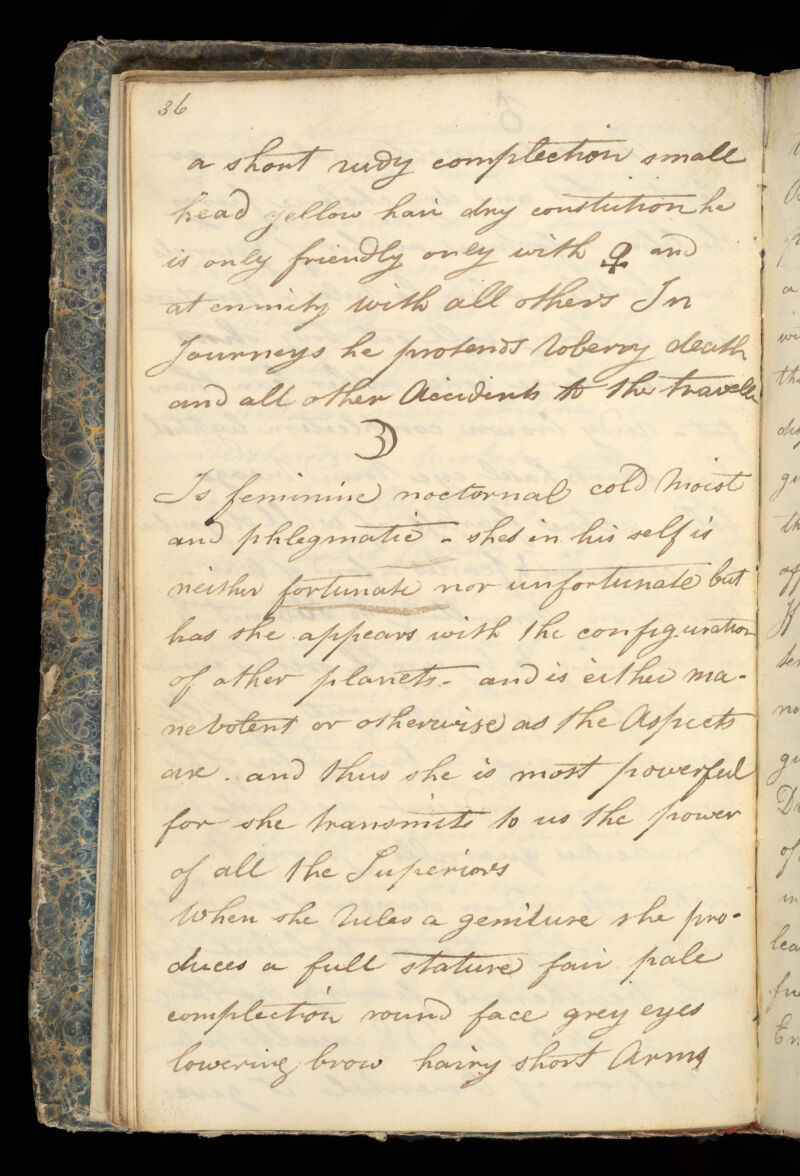 36
a short rudy complection small
head yellow hair dry constution he
is only friendly only with ♀ and
at enmity with all others In
Journeys he protends Roberry death
and all other Accidents to the travell
☽
Is feminine noctornal cold Moist
and phlegmatic - shes in his self is
neither fortunate nor unfortunate but
has she appears with the configuration
of other planets - and is either ma-
nevolent or otherwise as the Aspects
are . and thus she is most powerful
for she transmits to us the power
of all the Superiors
When she Rules a geniture she pro-
duces a full stature fair pale
complection round face grey eyes
lowering brow hairy short Arms